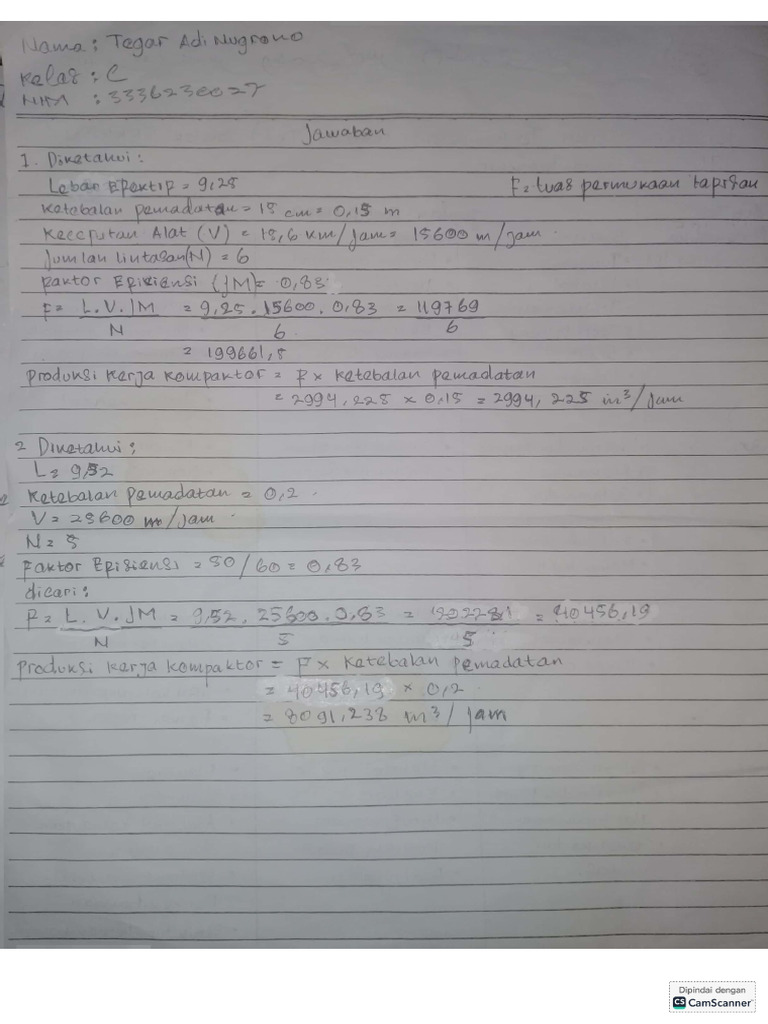 Nama : Tegar Adi Nugrono
Kelas : C
NIM : 3336230027
Jawaban
1. Diketahui :
Lebar Efektif = 9,25 F = Luas permukaan tapisan
Ketebalan pemadatan = 15 cm = 0,15 m
Kecepatan Alat (V) = 15,6 km/jam = 15600 m/jam
Jumlah lintasan (N) = 6
Faktor Efisiensi (JM) = 0,83
F = L.V.JM / N = 9,25 . 15600 . 0,83 / 6 = 119769 / 6
= 199661,5
Produksi Kerja Kompaktor = F x Ketebalan pemadatan
= 2994,225 x 0,15 = 2994,225 m³/Jam
2 Diketahui :
L = 9,52
Ketebalan Pemadatan = 0,2
V = 25600 m/jam
N = 5
Faktor Efisiensi = 50/60 = 0,83
dicari :
F = L.V.JM / N = 9,52 . 25600 . 0,83 / 5 = 202281 / 5 = 40456,19
Produksi Kerja Kompaktor = F x Ketebalan pemadatan
= 40456,19 x 0,2
= 8091,238 m³/jam
Dipindai dengan
CS CamScanner